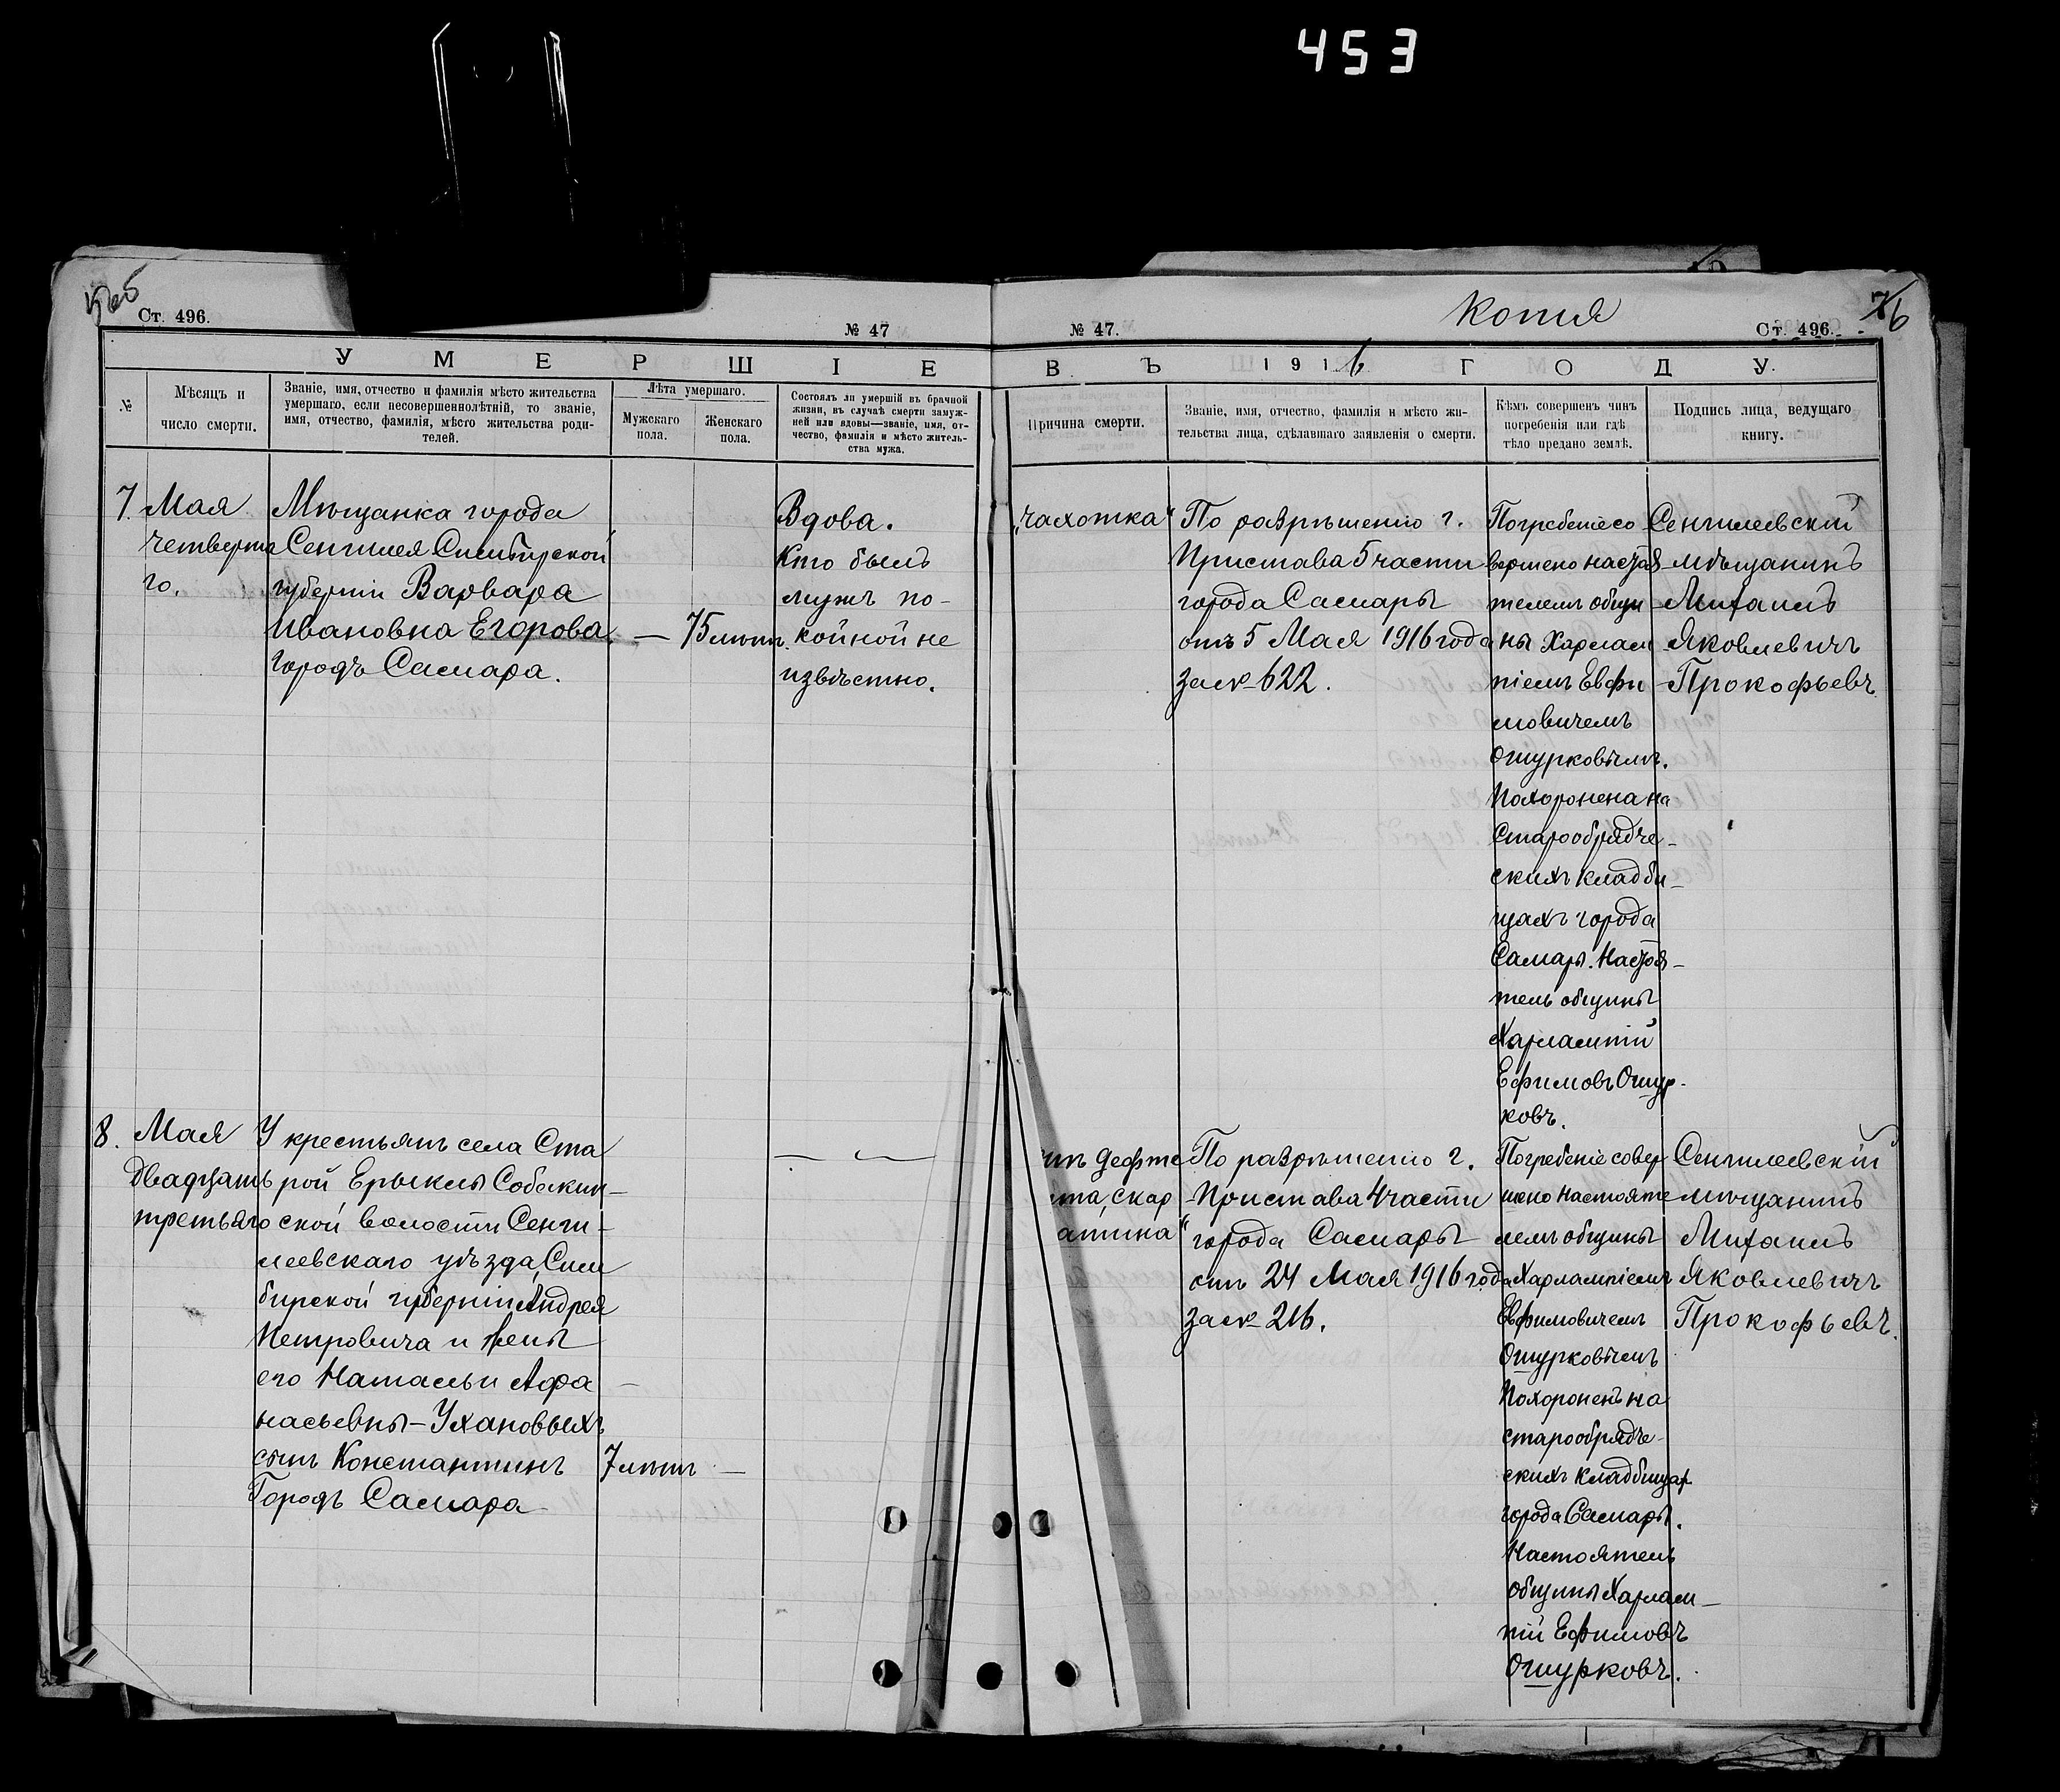 453
Копия
76
Ст. 496.
№ 47
№ 47.
Ст. 496.
УМЕРШІЕ
ВЪ 1916 ГОДУ.
№
Мѣсяцъ и
число смерти.
Званіе, имя, отчество и фамилія мѣсто жительства
умершаго, если несовершеннолѣтній, то званіе,
имя, отчество, фамилія, мѣсто жительства роди-
телей.
Лѣта умершаго.
Мужскаго
пола.
Женскаго
пола.
Состоялъ ли умершій въ брачной
жизни, въ случаѣ смерти замуж-
ней или вдовы—званіе, имя, от-
чество, фамилія и мѣсто житель-
ства мужа.
Причина смерти.
Званіе, имя, отчество, фамилія и мѣсто жи-
тельства лица, сдѣлавшаго заявленія о смерти.
Кѣмъ совершенъ чинъ
погребенія или гдѣ
тѣло предано землѣ.
Подпись лица, ведущаго
книгу.
7.
Мая
четверта
го.
Мѣщанка города
Сенгилея Симбирской
губерніи Варвара
Ивановна Егорова.
Городъ Самара.
—
75 лѣтъ.
Вдова.
Кто былъ
мужъ по-
койной не
извѣстно.
„чахотка“
По разрѣшенію г.
Пристава 5 части
города Самары
отъ 5 Мая 1916 года
за № 622.
Погребеніе со
вершено настоя
телемъ общи
ны Харлам
піемъ Евфи
мовичемъ
Ошурковымъ.
Похоронена на
Старообрядче-
скихъ кладби-
щахъ города
Самары. Настоя-
тель общины
Харлампій
Ефимовъ Ошур-
ковъ.
Сенгилеевскій
мѣщанинъ
Михаилъ
Яковлевичъ
Прокофьевъ.
8.
Мая
Двадцать
третьяго
У крестьянъ села Ста
рой Ерыклы Собакин-
ской волости Сенги-
леевскаго уѣзда, Сим
бирской губерніи Андрея
Петровича и жены
его Натальи Афа-
насьевны-Ухановыхъ
сынъ Константинъ
Городъ Самара
7 лѣтъ
—
— —
дефте
та, скар
атина“
По разрѣшенію г.
Пристава 4 части
города Самары
отъ 24 Мая 1916 года
за № 216.
Погребеніе совер
шено настояте
лемъ общины
Харлампіемъ
Евфимовичемъ
Ошурковымъ
Похороненъ на
старообрядче-
скихъ кладбищах
города Самары.
Настоятель
общины Харлам-
пій Ефимовъ
Ошурковъ.
Сенгилеевскій
мѣщанинъ
Михаилъ
Яковлевичъ
Прокофьевъ.